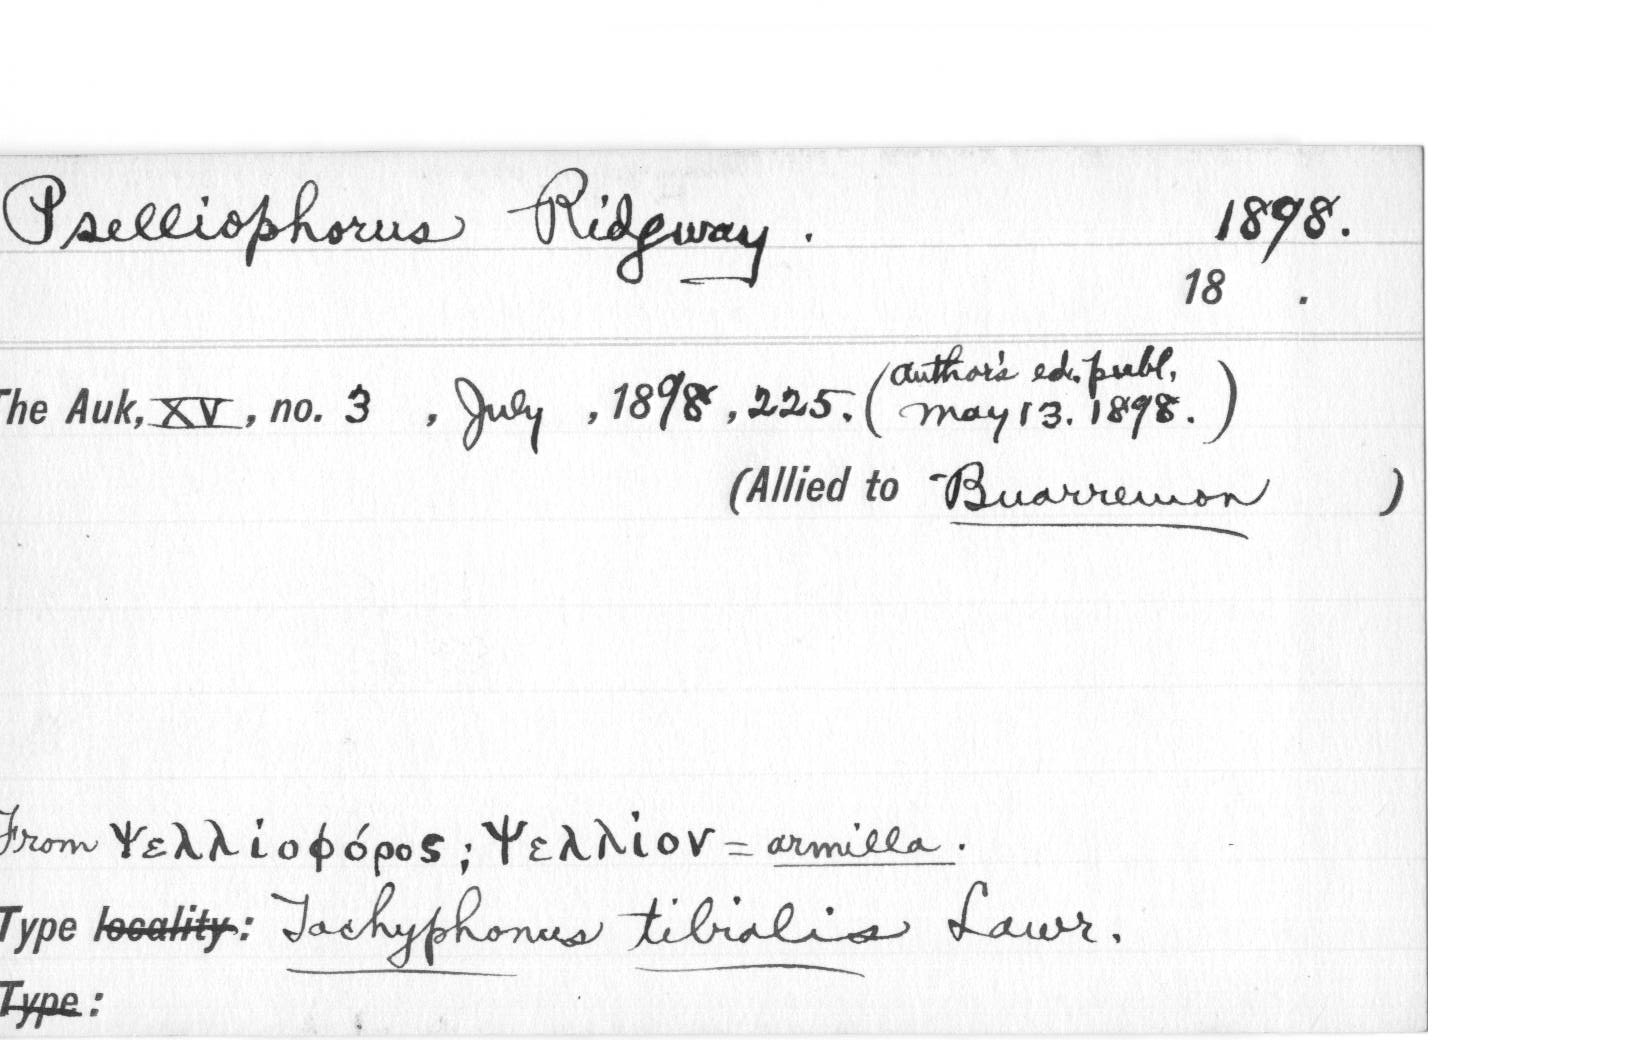 Pselliophorus Ridgway. 1898.
18 .
The Auk, XV, no. 3, July, 1898, 225. (author's ed. publ. May 13. 1898.)
(Allied to Buarremon )
From Ψελλιοφόρος; Ψελλίον = armilla.
Type locality: Tachyphonus tibialis Lawr.
Type: